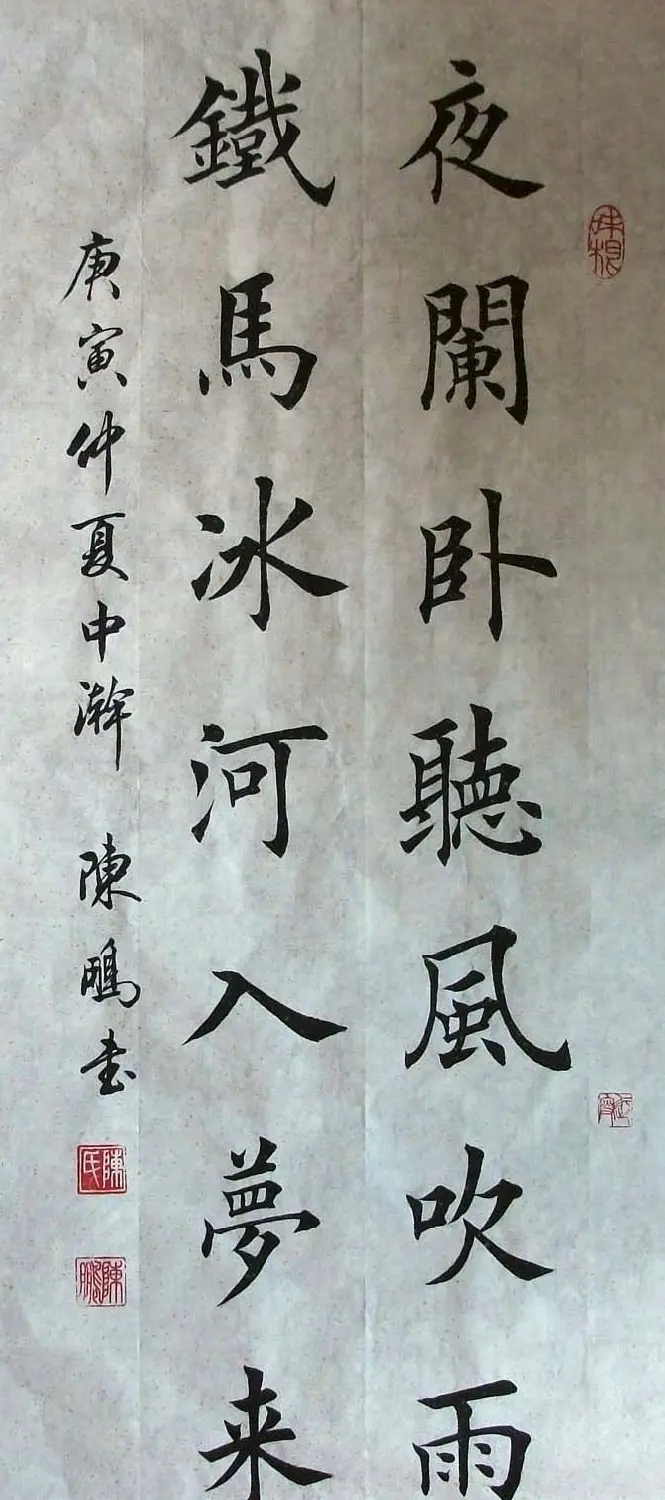 夜闌卧聽風吹雨
鐵馬冰河入夢来
庚寅仲夏中瀚 陳鵬书
陳氏
陳鵬